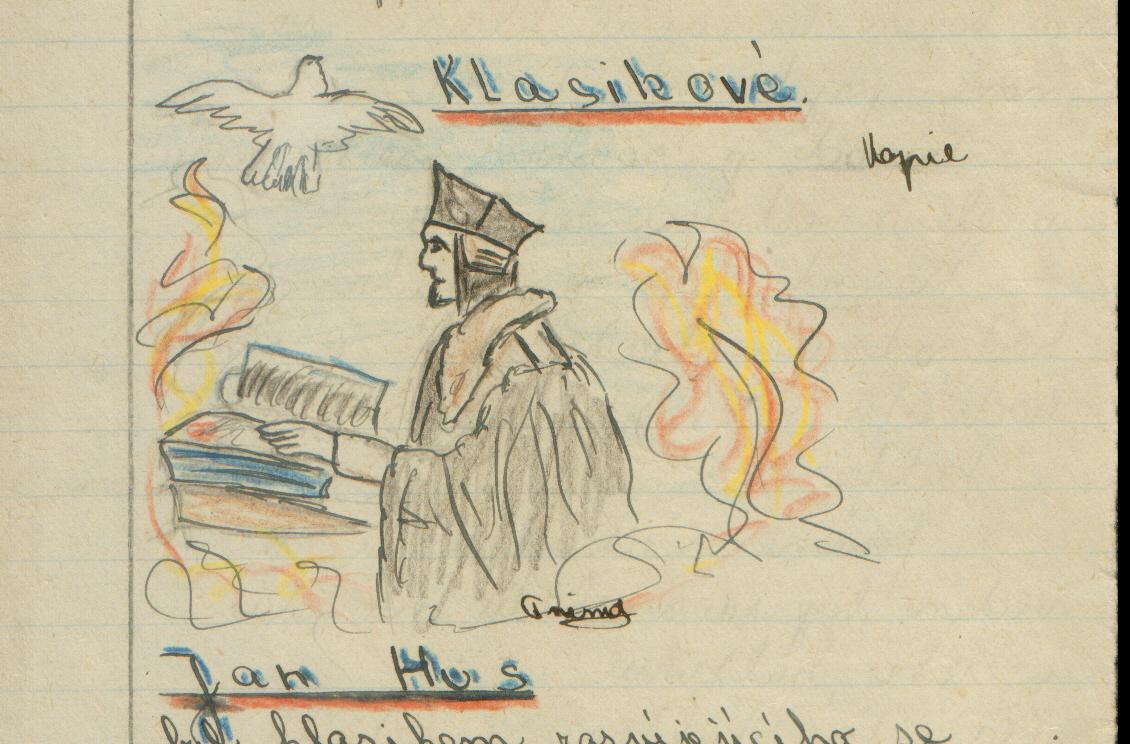 Klasikové.
Kopie
Anima
Jan Hus
byl klasikem rozvíjejícího se